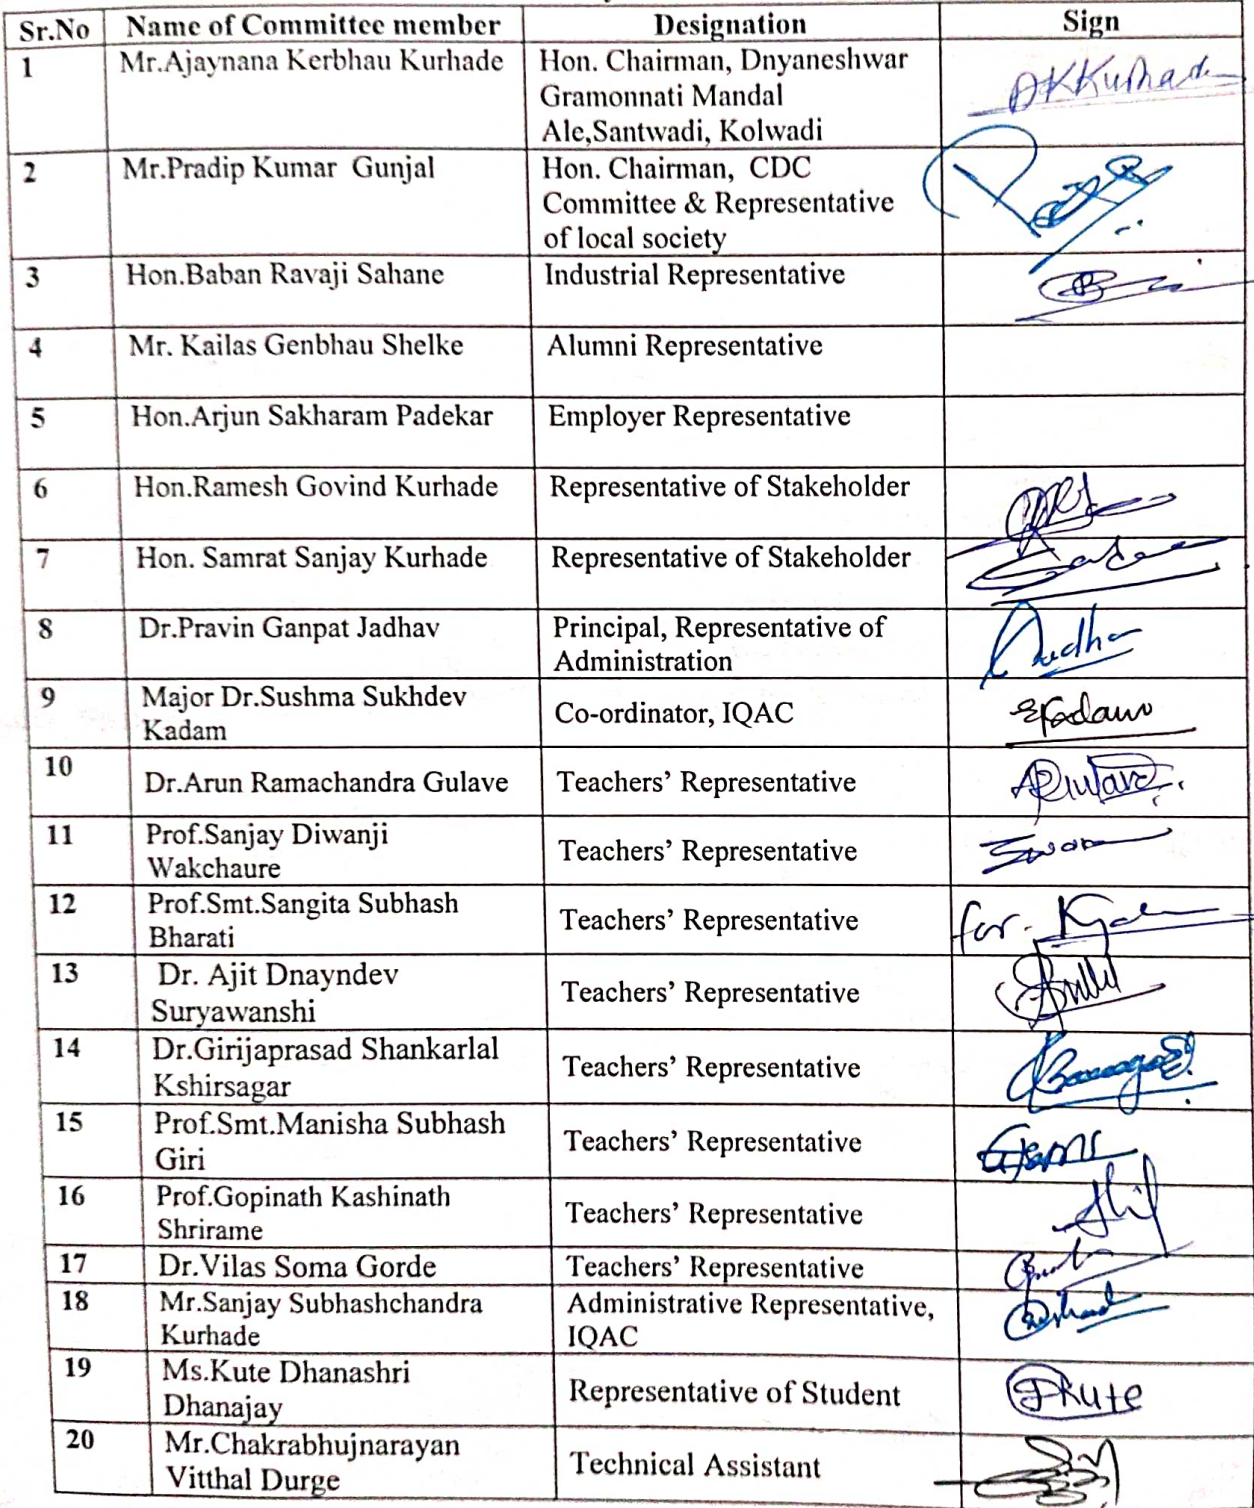 Sr.No Name of Committee member Designation Sign
1 Mr.Ajaynana Kerbhau Kurhade Hon. Chairman, Dnyaneshwar AKKurhade
Gramonnati Mandal
Ale,Santwadi, Kolwadi
2 Mr.Pradip Kumar Gunjal Hon. Chairman, CDC
Committee & Representative
of local society
3 Hon.Baban Ravaji Sahane Industrial Representative
4 Mr. Kailas Genbhau Shelke Alumni Representative
5 Hon.Arjun Sakharam Padekar Employer Representative
6 Hon.Ramesh Govind Kurhade Representative of Stakeholder
7 Hon. Samrat Sanjay Kurhade Representative of Stakeholder
8 Dr.Pravin Ganpat Jadhav Principal, Representative of
Administration
9 Major Dr.Sushma Sukhdev
Kadam Co-ordinator, IQAC SKadam
10 Dr.Arun Ramachandra Gulave Teachers' Representative ARGulave
11 Prof.Sanjay Diwanji
Wakchaure Teachers' Representative
12 Prof.Smt.Sangita Subhash
Bharati Teachers' Representative for.
13 Dr. Ajit Dnayndev
Suryawanshi Teachers' Representative
14 Dr.Girijaprasad Shankarlal
Kshirsagar Teachers' Representative
15 Prof.Smt.Manisha Subhash
Giri Teachers' Representative
16 Prof.Gopinath Kashinath
Shrirame Teachers' Representative
17 Dr.Vilas Soma Gorde Teachers' Representative
18 Mr.Sanjay Subhashchandra Administrative Representative,
Kurhade IQAC
19 Ms.Kute Dhanashri
Dhanajay Representative of Student DKute
20 Mr.Chakrabhujnarayan
Vitthal Durge Technical Assistant